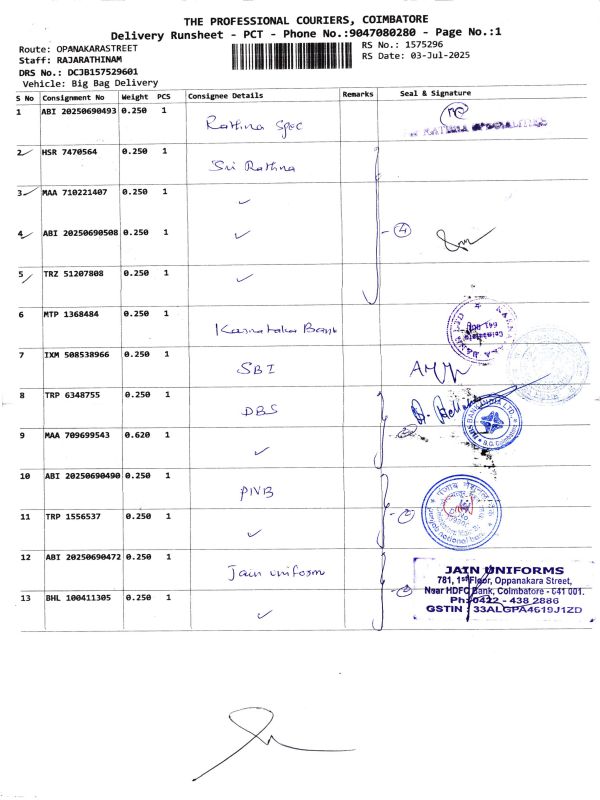 THE PROFESSIONAL COURIERS, COIMBATORE
Delivery Runsheet - PCT - Phone No.:9047080280 - Page No.:1
Route: OPANAKARASTREET
RS No.: 1575296
Staff: RAJARATHINAM
RS Date: 03-Jul-2025
DRS No.: DCJB157529601
Vehicle: Big Bag Delivery
S No Consignment No Weight PCS Consignee Details Remarks Seal & Signature
1 ABI 20250690493 0.250 1 Rathna Spec
2 HSR 7470564 0.250 1 Sri Rathna
3 MAA 710221407 0.250 1 ✓
4 ABI 20250690508 0.250 1 ✓ 4
5 TRZ 51207808 0.250 1 ✓
6 MTP 1368484 0.250 1 Karnataka Bank
7 IXM 508538966 0.250 1 SBI
8 TRP 6348755 0.250 1 DBS
9 MAA 709699543 0.620 1 ✓ 2
10 ABI 20250690490 0.250 1 PNB
11 TRP 1556537 0.250 1 ✓ 2
12 ABI 20250690472 0.250 1 Jain uniform
13 BHL 100411305 0.250 1 ✓ 2
JAIN UNIFORMS
781, 1st Floor, Oppanakara Street,
Near HDFC Bank, Coimbatore - 641 001.
Ph: 0422 - 438 2886
GSTIN : 33ALGPA4619J1ZD